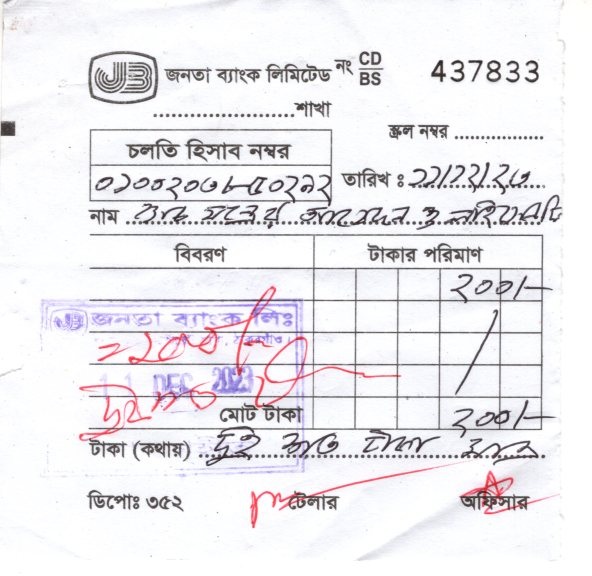 JB জনতা ব্যাংক লিমিটেড নং CD/BS 437833
....................শাখা
স্ক্রল নম্বর ..............
চলতি হিসাব নম্বর
তারিখ : ১১/১২/২৩
নাম
বিবরণ টাকার পরিমাণ
২০০/-
জনতা ব্যাংক লিঃ
=২০০/-
11 DEC 2023
দুইশত
মোট টাকা ২০০/-
টাকা (কথায়) দুই শত টাকা মাত্র
ডিপোঃ ৩৫২ টেলার অফিসার